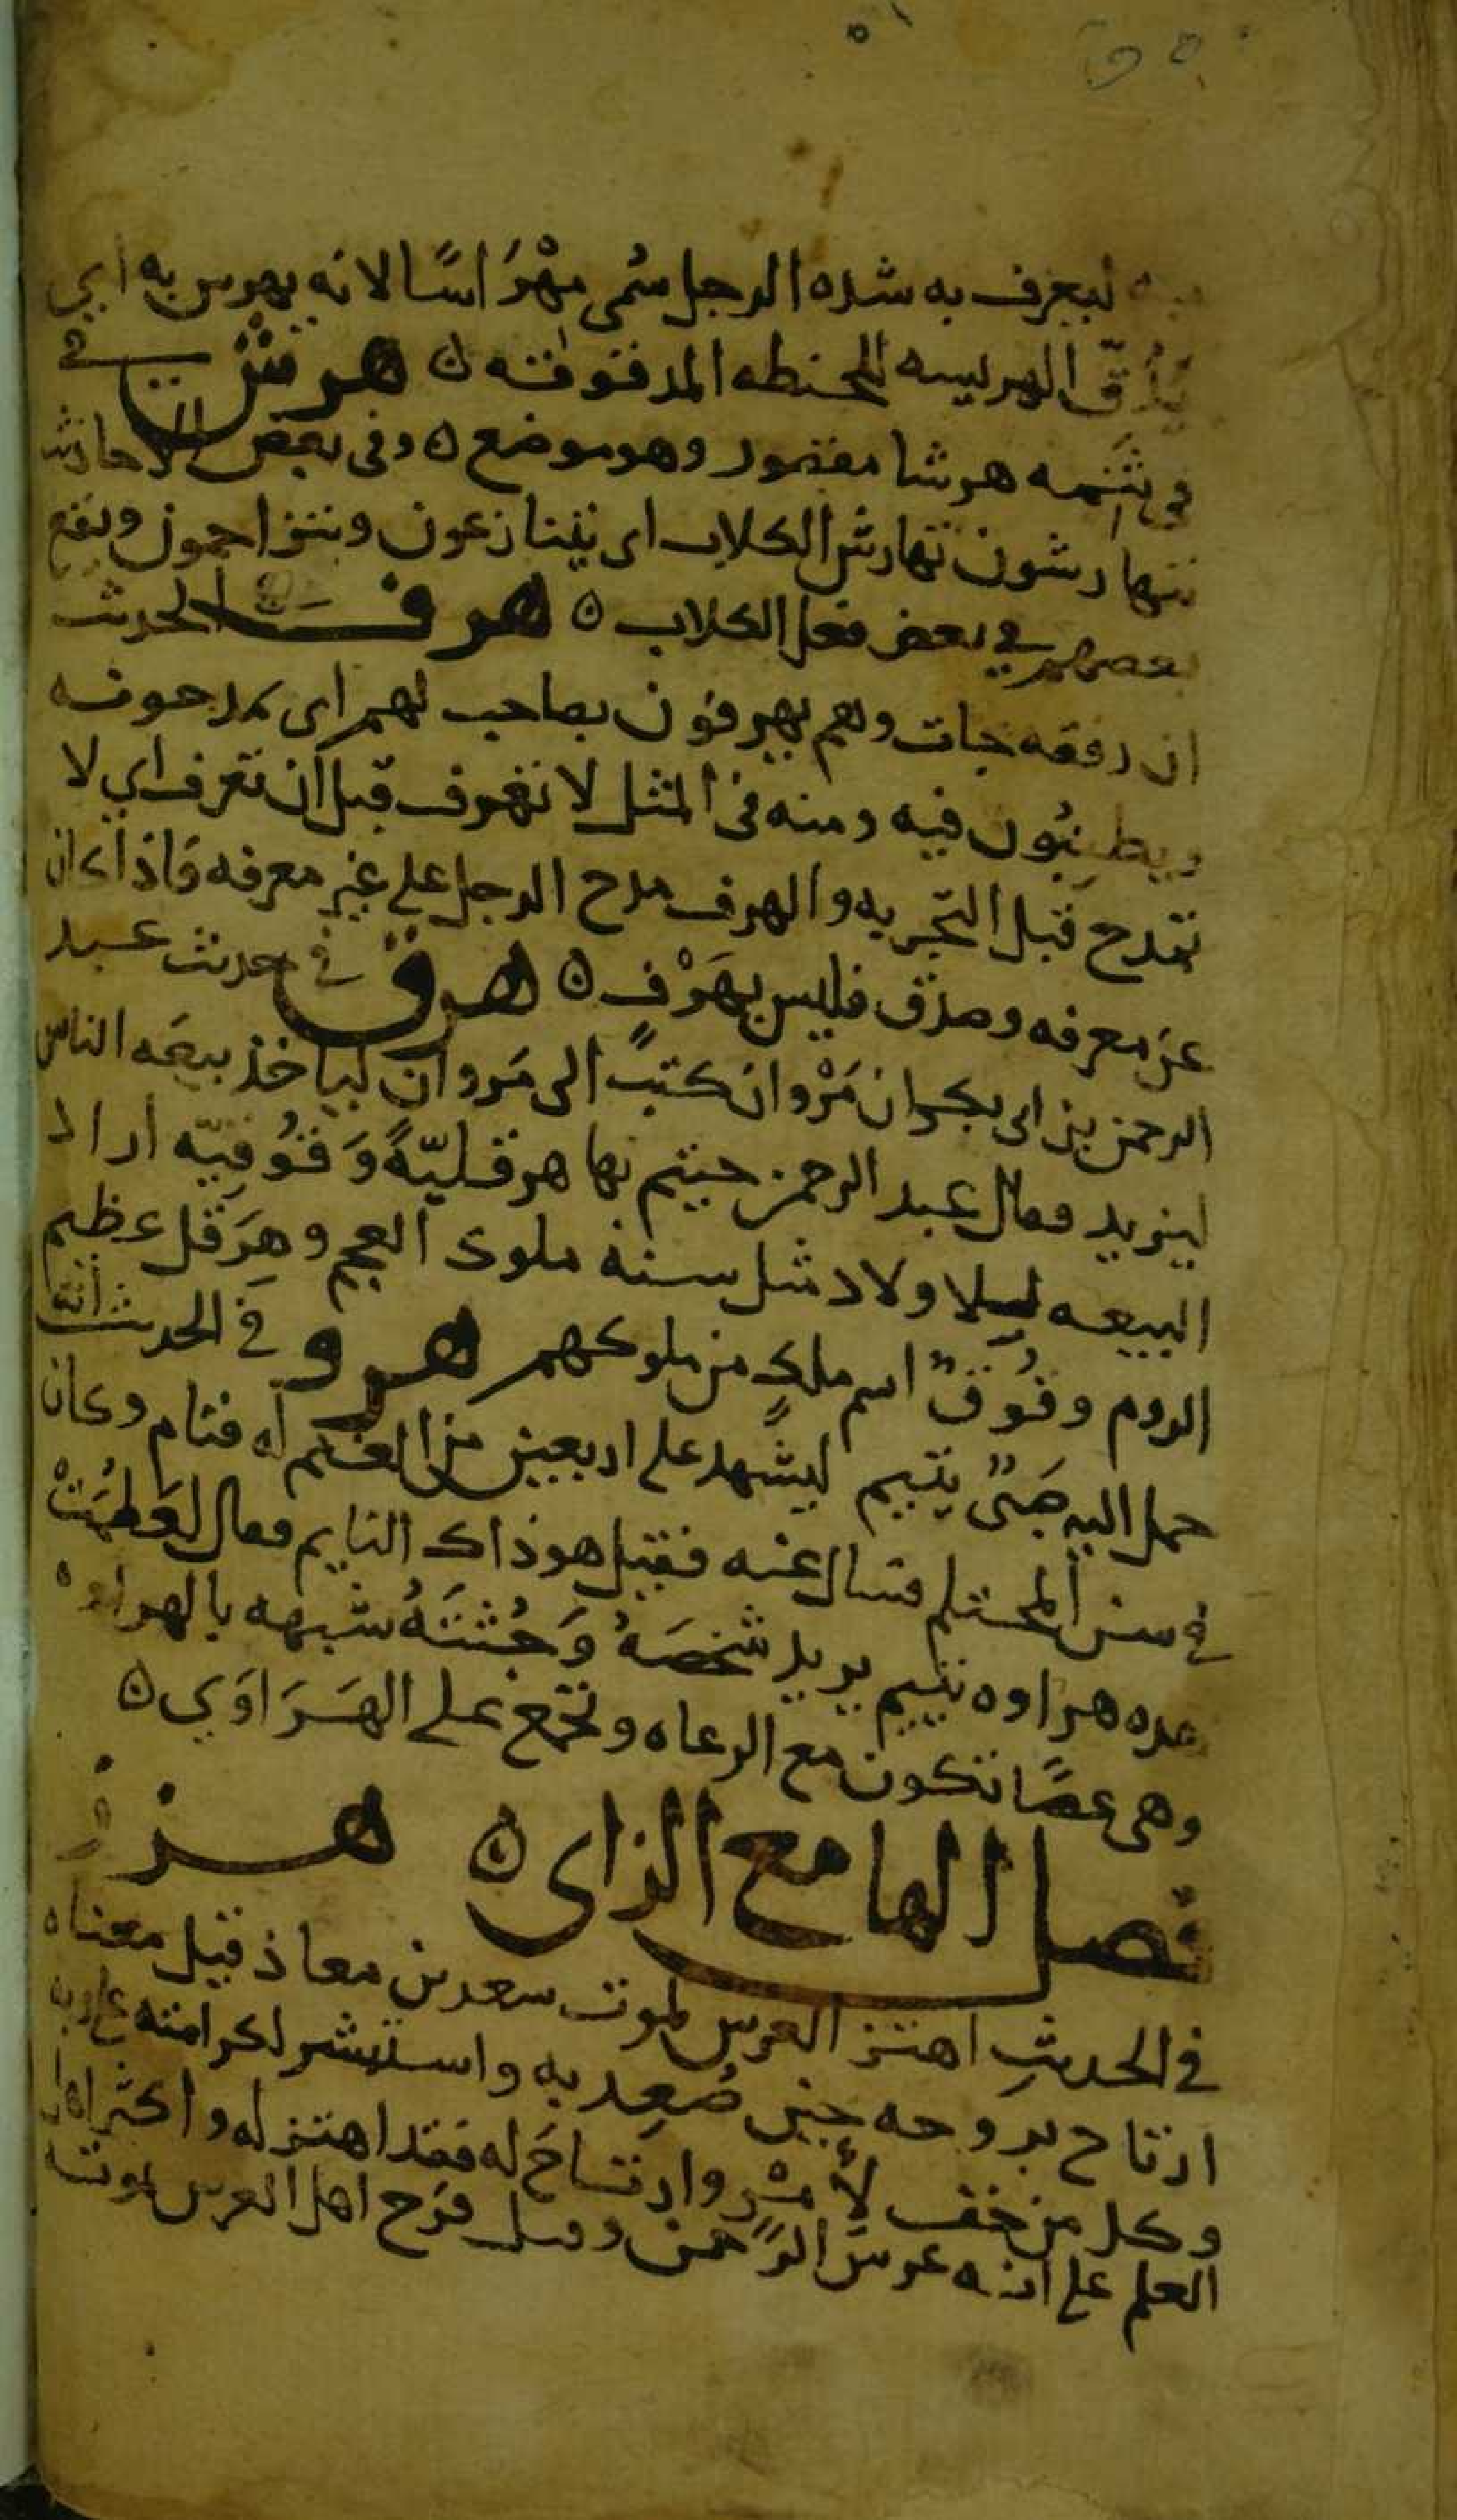 ليعرف به شده الرجل سُمى مِهْرَاسًا لانه يهرس به اي
يُدَقّ الهريسه للحنطه المدقوقه ه هرش في
فى ثَنيه هرشا مقصور وهو موضع ه وفى بعض الاحاديث
يتهارشون تهارش الكلاب اى يتنازعون ويتزاحمون ويقع
بعضهم في بعض فعل الكلاب ه هرف الحديث
ان رفقه جات وهم يهرفون بصاحب لهم اى يمدحونه
ويطنبُون فيه ومنه فى المثل لا تهرف قبل ان تعرف اي لا
تمدح قبل التجربه والهرف مدح الرجل على غير معرفه فاذا كان
عن معرفه وصدق فليس بهَرْف ه هرق في حديث عبد
الرحمن بن ابى بكر ان مَرْوان كتب الى مَروان لياخذ بيعَه الناس
ليزيد فقال عبد الرحمن جيتم بها هرقليّهً وَقُوقِيّه اراد
البيعه للاولاد مثل سنه ملوك العجم وهِرَقل عظيم
الروم وقُوقٌ اسم ملكٍ من ملوكهم هرو في الحديث انه
حمل اليه صَبيٌّ يتيم ليشهد على اربعين من الغنم له فنام وكان
في سن المحتلم فسال عنه فقيل هو ذاك النايم فقال لعَظُمَتْ
هذه هراوه يتيم يريد شخصَهُ وَجُثتَهُ شبهه بالهراوه
وهى عصًا تكون مع الرعاه وتجمع على الهَرَاوَي ه
فصل الها مع الزاى ه هزز
في الحديثِ اهتز العرش لموت سعد بن معاذ قيل معناه
ارتاح بروحه حين صُعِد به واستبشر لكرامته على ربه
وكل من خف لأَمْرٍ وارتاحَ له فقد اهتز له واكثر اهل
العلم على انه عرش الرَّحمن وقيل فرح اهل العرش بموته